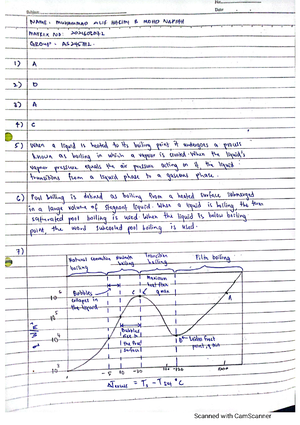 No.
Subject
Date
NAME: MUHAMMAD ALIF HAZIM & MOHD NAFIZH
MATRIX NO:
GROUP:
1) A
2) D
3) A
4) C
5) When a liquid is heated to its boiling point it undergoes a process
known as boiling in which a vapour is created. When the liquid's
vapour pressure equals the air pressure acting on it the liquid
transitions from a liquid phase to a gaseous phase.
6) Pool boiling is defined as boiling from a heated surface submerged
in a large volume of stagnant liquid. When a liquid is boiling the term
saturated pool boiling is used when the liquid is below boiling
point the word subcooled pool boiling is used.
7)
Natural convection boiling
Nucleate boiling
Transition boiling
Film boiling
Maximum heat flux
Bubbles collapse in the liquid
Bubbles rise to the free surface
C
A
5 10 ~30 ~120 1000
ΔTexcess = Ts - Tsat °C
Scanned with CamScanner